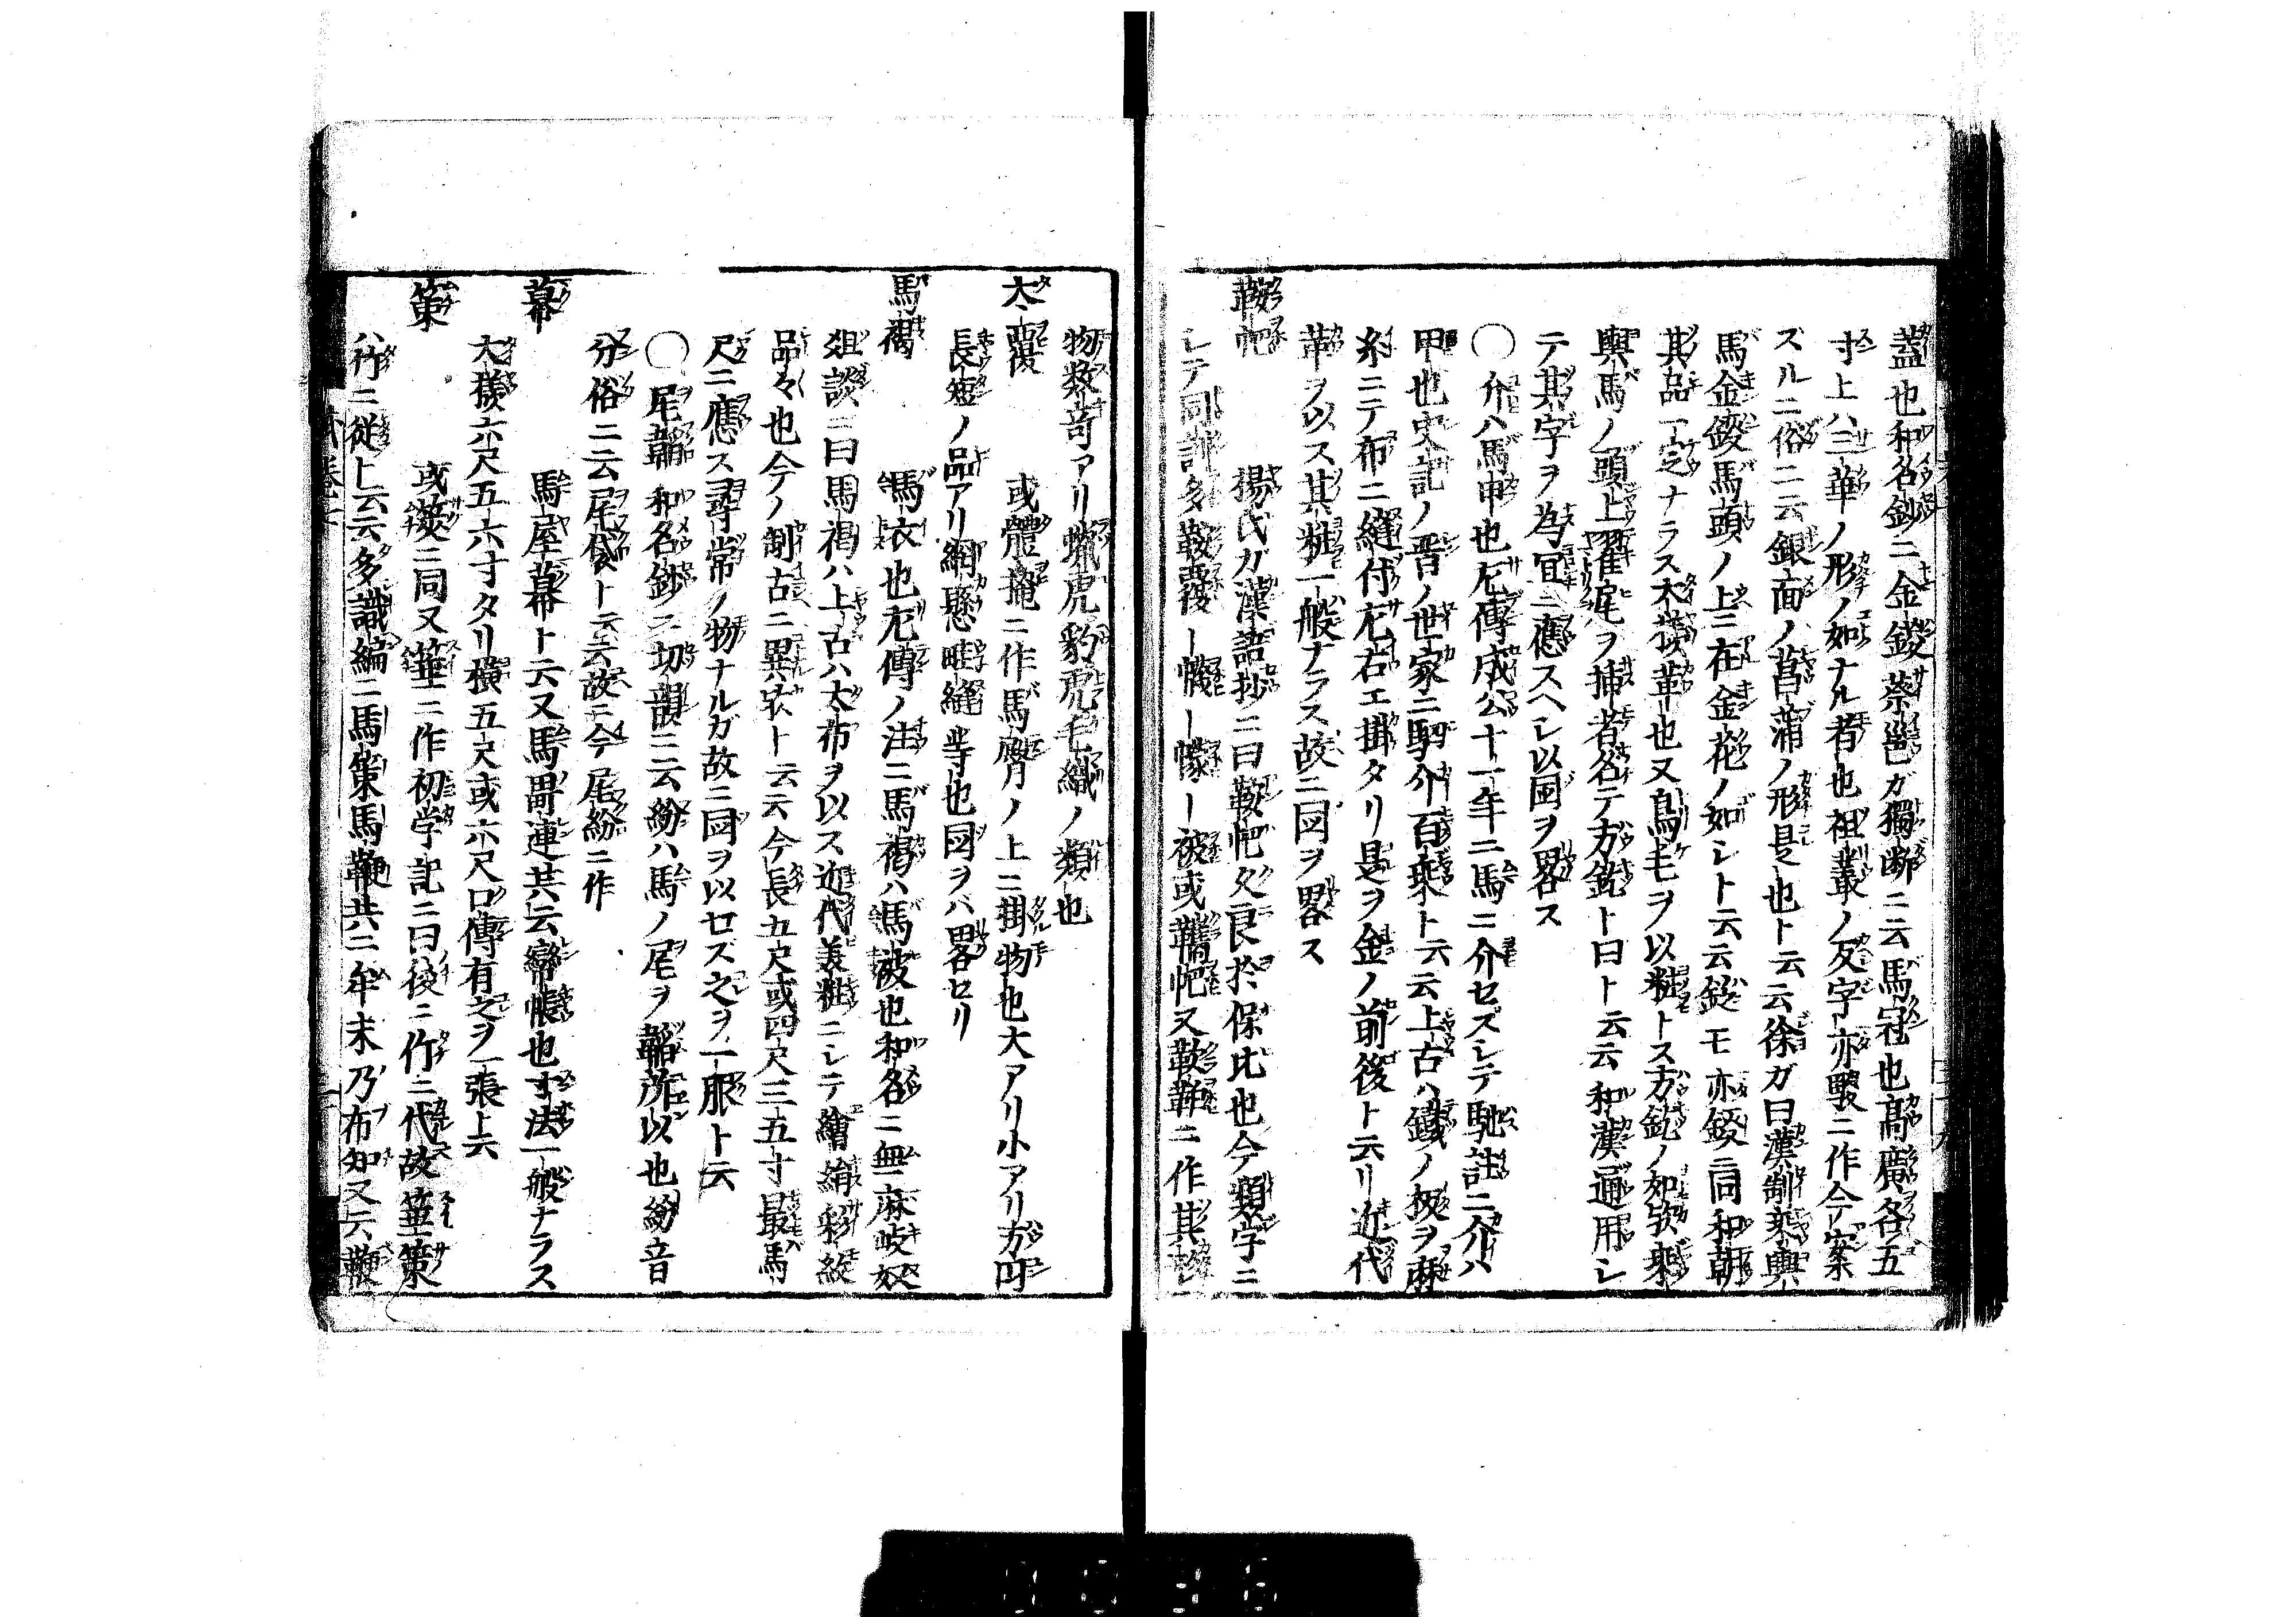 蓋也和名鈔ニ金鍐蔡邕ガ獨断ニ云馬冠也髙廣各五
寸上ハ三華ノ形ノ如ナル者也祖叢ノ反字亦騣ニ作今案
ズルニ俗ニ云銀面ノ菖蒲ノ形是也ト云云徐ガ曰漢制乗輿
馬金鍐馬頭ノ上ニ在金花ノ如シト云云鍐モ亦鍐ニ同和朝
其品一定ナラス大様革也又鳥毛ヲ以粧トス方釳ノ如欤乗
輿馬ノ頭上翟尾ヲ挿者名テ方釳ト曰ト云云和漢通用シ
テ其字ヲ為宜ニ應スヘシ以圖ヲ畧ス
〇介ハ馬甲也左傳成公十一年ニ馬ニ介セズシテ馳註ニ介ハ
甲也史記ノ晋ノ世家ニ駟介百乗ト云云上古ハ鐵ノ板ヲ麻
糸ニテ布ニ縫付左右エ掛タリ是ヲ金ノ前後ト云リ近代
革ヲ以ス其粧一般ナラス故ニ図ヲ畧ス
鞍帊 楊氏ガ漢語抄ニ曰鞍帊久良於保比也今類字ニ
シテ同訓多鞍覆ー幭ー幪ー被或韉帊又ニ作其
物数奇アリ蠟虎豹虎毛織ノ類也
大覆 或體掩ニ作馬臋ノ上ニ掛物也大アリ小アリ方円
長短ノ品アリ網懸畦縫等也図ヲハ畧セリ
馬褐 馬衣也左傳ノ注ニ馬褐ハ馬被也和名ニ無麻岐奴
俎談ニ曰馬褐ハ上古ハ大布ヲ以ス近代美粧ニシテ繪絹彩紋
品々也今ノ制古ニ異欤ト云云今長五尺或四尺三五寸最馬
尺ニ應ス尋常ノ物ナルガ故ニ図ヲ以セズ之ヲ一服ト云
〇尾韜和名鈔ニ切韻ニ云紛ハ馬ノ尾ヲ韜所以也紛音
分俗ニ云尾袋ト云云故ニ今尾紛ニ作
幕 馬屋幕ト云又馬罽連共云幃帳也寸法一般ナラス
大様六尺五六寸タリ横五尺或六尺口傳有之ヲ一張ト云
策 或筴ニ同又箠ニ作初学記ニ曰後ニ竹ニ代故箠策
ハ竹ニ従ト云云多識編ニ馬策馬鞭共ニ牟末乃布知又云鞭